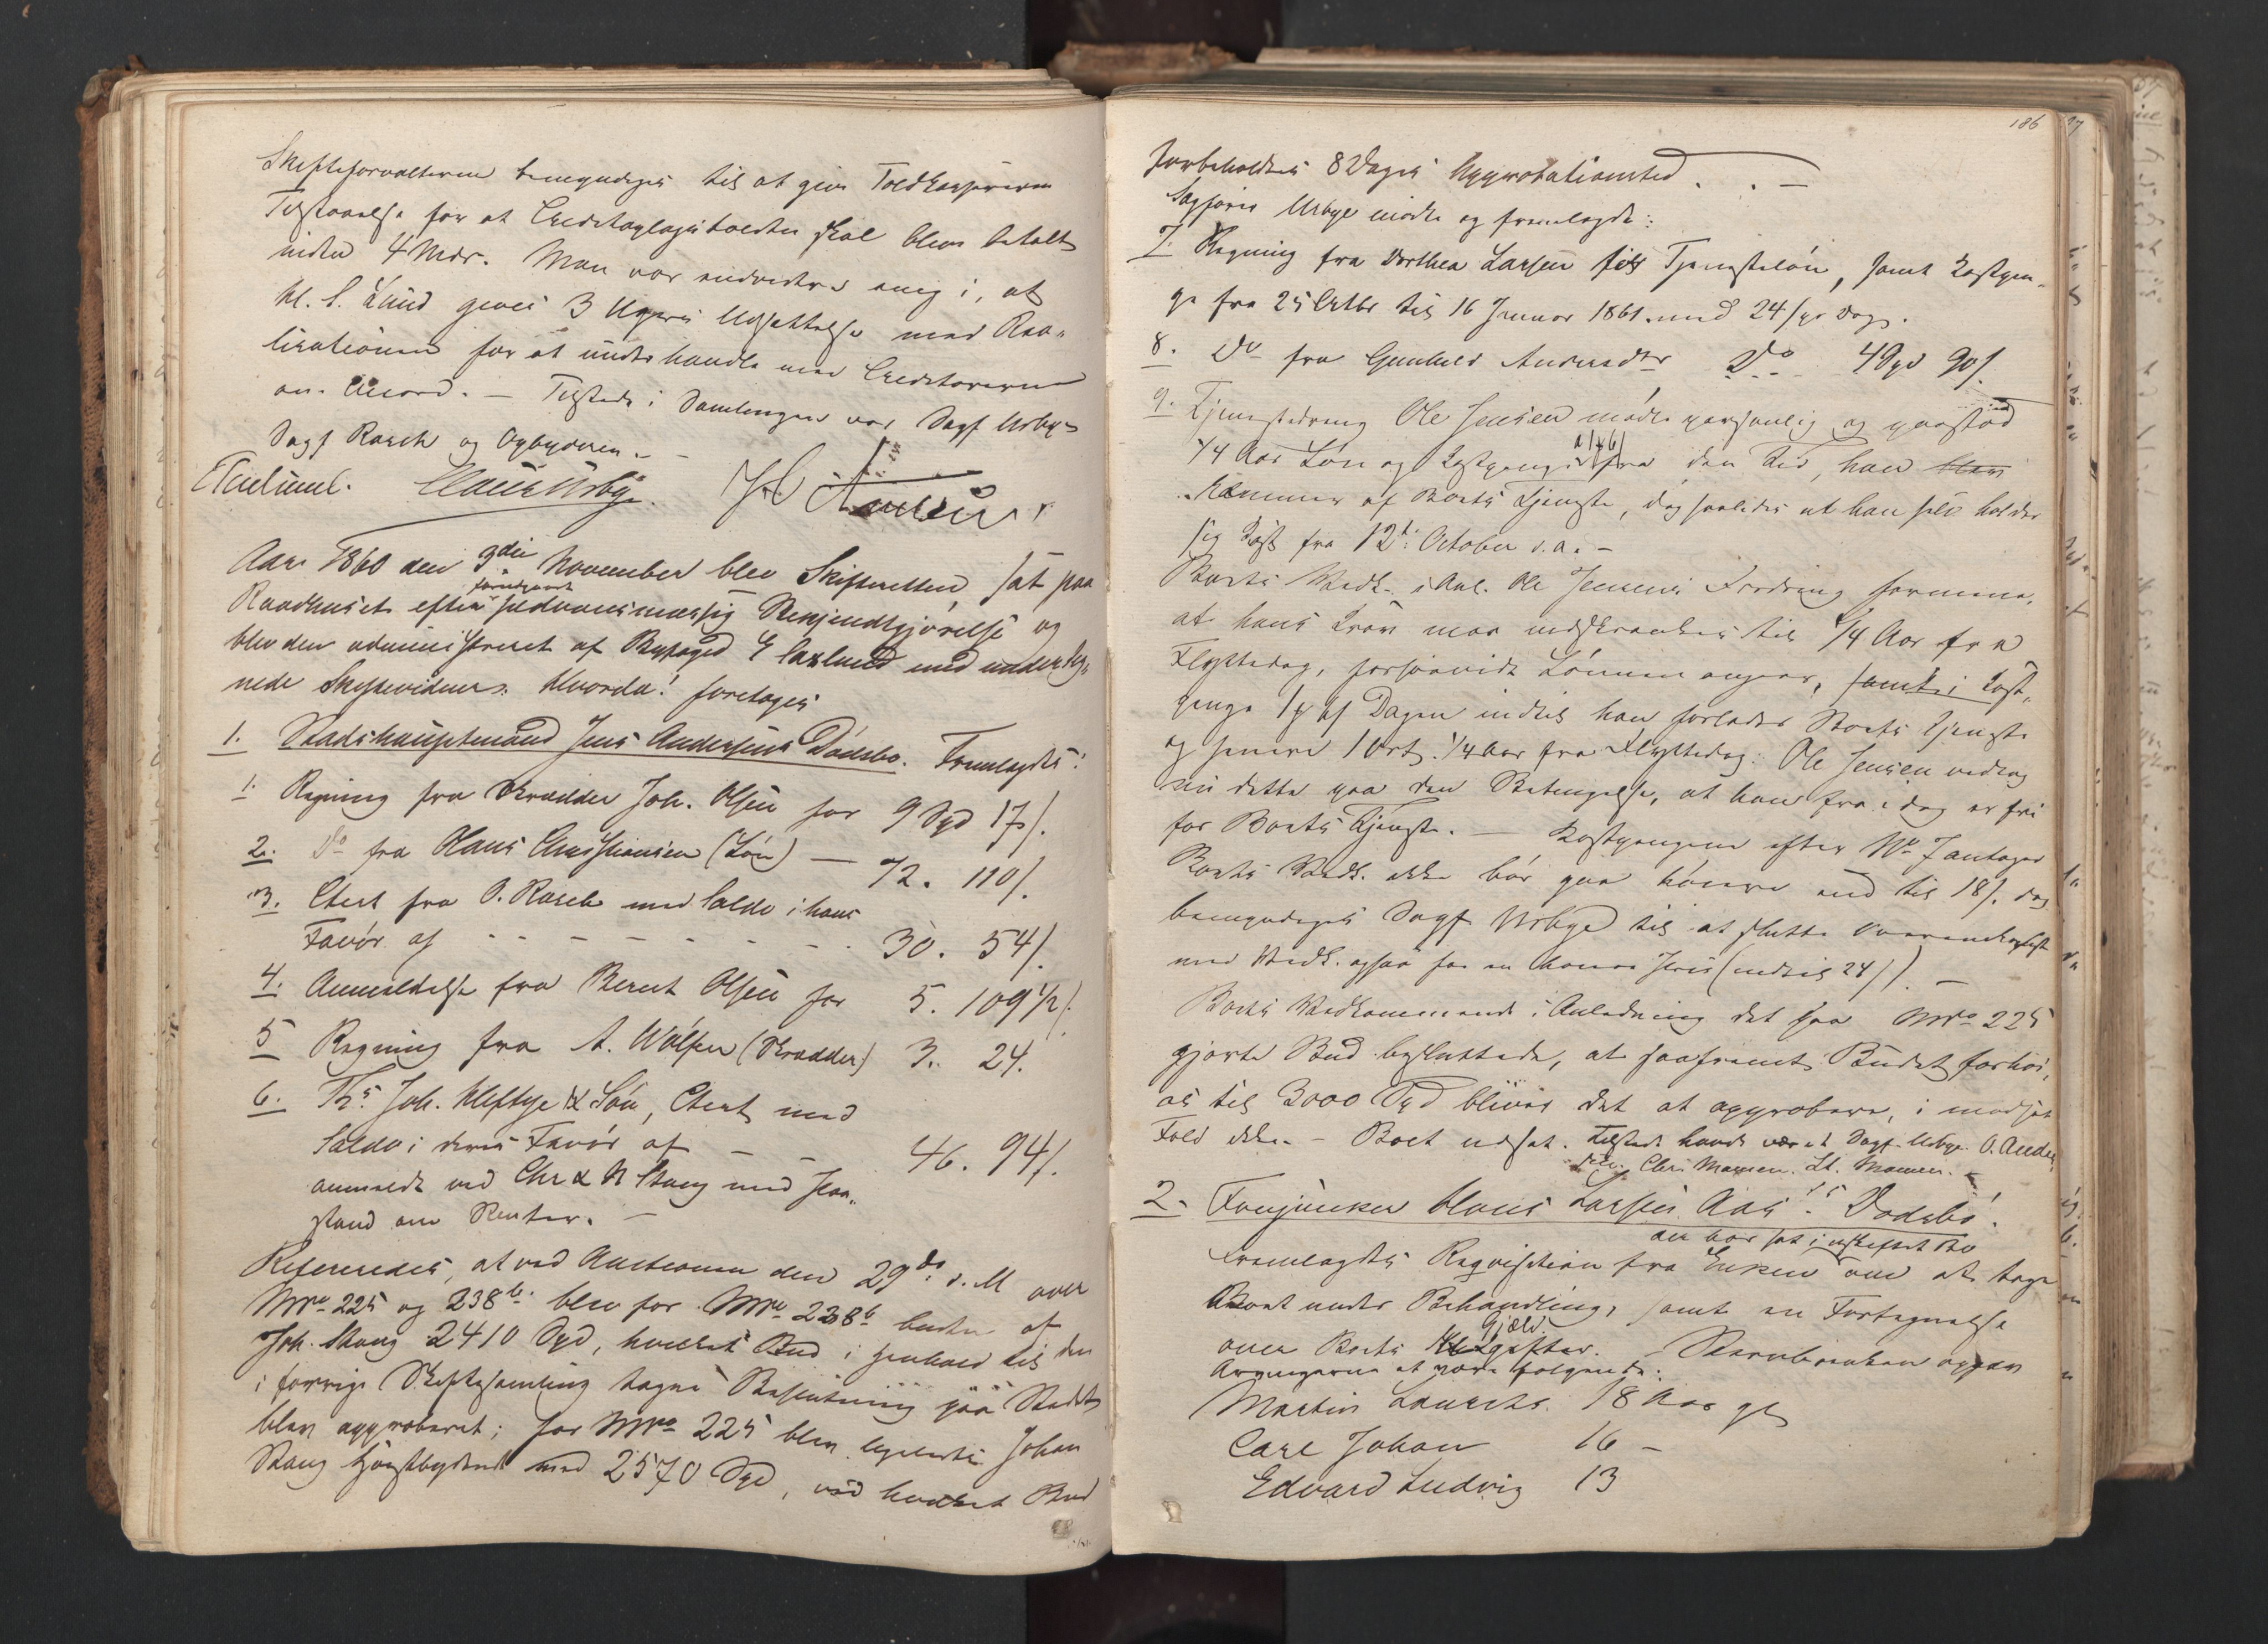 Skifteforvalteren bemyndiges til at give Toldkassereren
Tilstaaelse for at Creditoplagstolden skal blive betalt
inden 4 Mdr. Man var endvidere enig i, at
H. S. Lund gives 3 Ugers Udsættelse med Rea-
lisationen for at underhandle med Creditorerne
om Accord. — Tilstede i Samlingen var Sagf Urbye
Sagf Rasch og Opbyderen. —
Aar 1860 den 3die November blev Skifteretten sat paa
Raadhuset efter forudgaaet sedvansmæssig Bekjendtgjørelse og
blev den administreret af Byfoged E Caslund med underteg-
nede Skiftevidner. Hvorda! foretoges
1. Stadshauptmand Jens Andersens Dødsbo. Fremlagdes:
1. Regning fra Skrædder Joh. Olsen for 9 Spd 17 /.
2. Do fra Hans Christiansen (Løn) — 72. 110 /.
3. Extract fra O. Rasch med Saldo i hans
Favør af - - - - - - - 30. 54 /.
4. Anmeldelse fra Bernt Olsen for 5. 109 1/2 /.
5 Regning fra A. Wølsen (Skrædder) 3. 24.
6. Ths Joh. Heftye & Søn, Extract med
Saldo i deres Favør af — — 46. 94 /.
anmeldt ved Chr & N Stang med Paa-
stand om Renter. —
Refereredes, at ved Auctionen den 29de s. M over
Mro 225 og 238b. blev for Mro 238b budt af
Joh. Stang 2410 Spd, hvilket Bud i Henhold til den
i forrige Skiftesamling tagne Beslutning paa Stedet
blev approberet; for Mro 225 blev ligeledes Johan
Stang Høistbydende med 2570 Spd, ved hvilket Bud
186
forbeholdtes 8 Dages Approbationstid. . —
Sagfører Urbye mødte og fremlagde:
7. Regning fra Dorthea Larsen for Tjenesteløn, samt Kostpen-
ge fra 25 Octbr til 16 Januar 1861. med 24 / pr Dag.
8. Do fra Gunhild Andersdtr Do 4 Spd 90 /.
9. Tjenestedreng Ole Jensen mødte personlig og paastod
1/4 Aar Løn og Kostpenge fra den Tid, han blev
kommer af Boets Tjeneste, dog saaledes at han selv holder
sig Kost fra 12te October d. a. —
Boets Vedk. i Anl. Ole Jensens Fordring formene,
at hans Krav maa indskrænkes til 1/4 Aar fra
Flyttedag, forsaavidt Lønnen angaar, samt i Kost-
penge 1 / af Dagen indtil han forlader Boets Tjeneste
og senere 1 Ort. 1/4 Aar fra Flyttedag. Ole Jensen vedtog
nu dette paa den Betingelse, at han fra i dag er fri
for Boets Tjeneste. — Kostpengene efter No 7 antages
Boets Vedk. ikke bør gaa høiere end til 18 /. dog
bemyndiges Sagf Urbye til at slutte Overenskomst
med Vedk. ogsaa for en høiere Priis (indtil 24 /). —
Boets Vedkommende i Anledning det paa Mro 225
gjorte Bud besluttede, at saafremt Budet forhøi-
es til 3000 Spd bliver det at approbere, i modsat
Fald ikke. — Boet udsat. Tilstede havde været Sagf. Urbye. O. Ander-
sen. Chr. Mamen. Lt. Mamen. —
2. Fanejunker Hans Larsen Aas's Dødsbo.
der var sat i uskiftet Bo
Fremlagdes Reqvisition fra Enken om at tage
Boet under Behandling, samt en Fortegnelse
over Boets Gjæld. Udgifter. Stervboenken opgav
Arvingerne at være følgende:
Martin Laurits. 18 Aar gl
Carl Johan 16 —
Edvard Ludvig 13